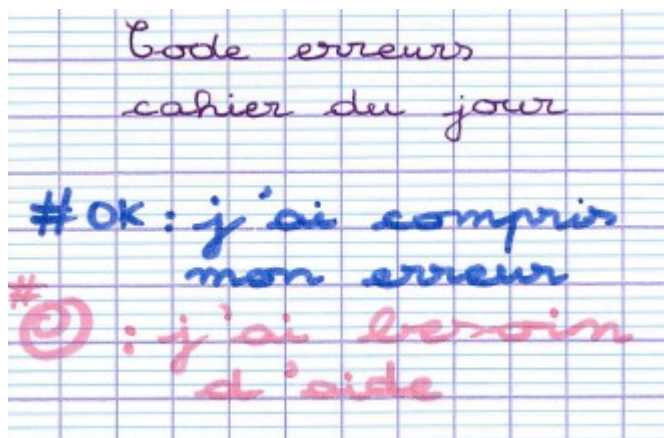 Code erreurs
cahier du jour
#OK : j'ai compris
mon erreur
#@ : j'ai besoin
d'aide